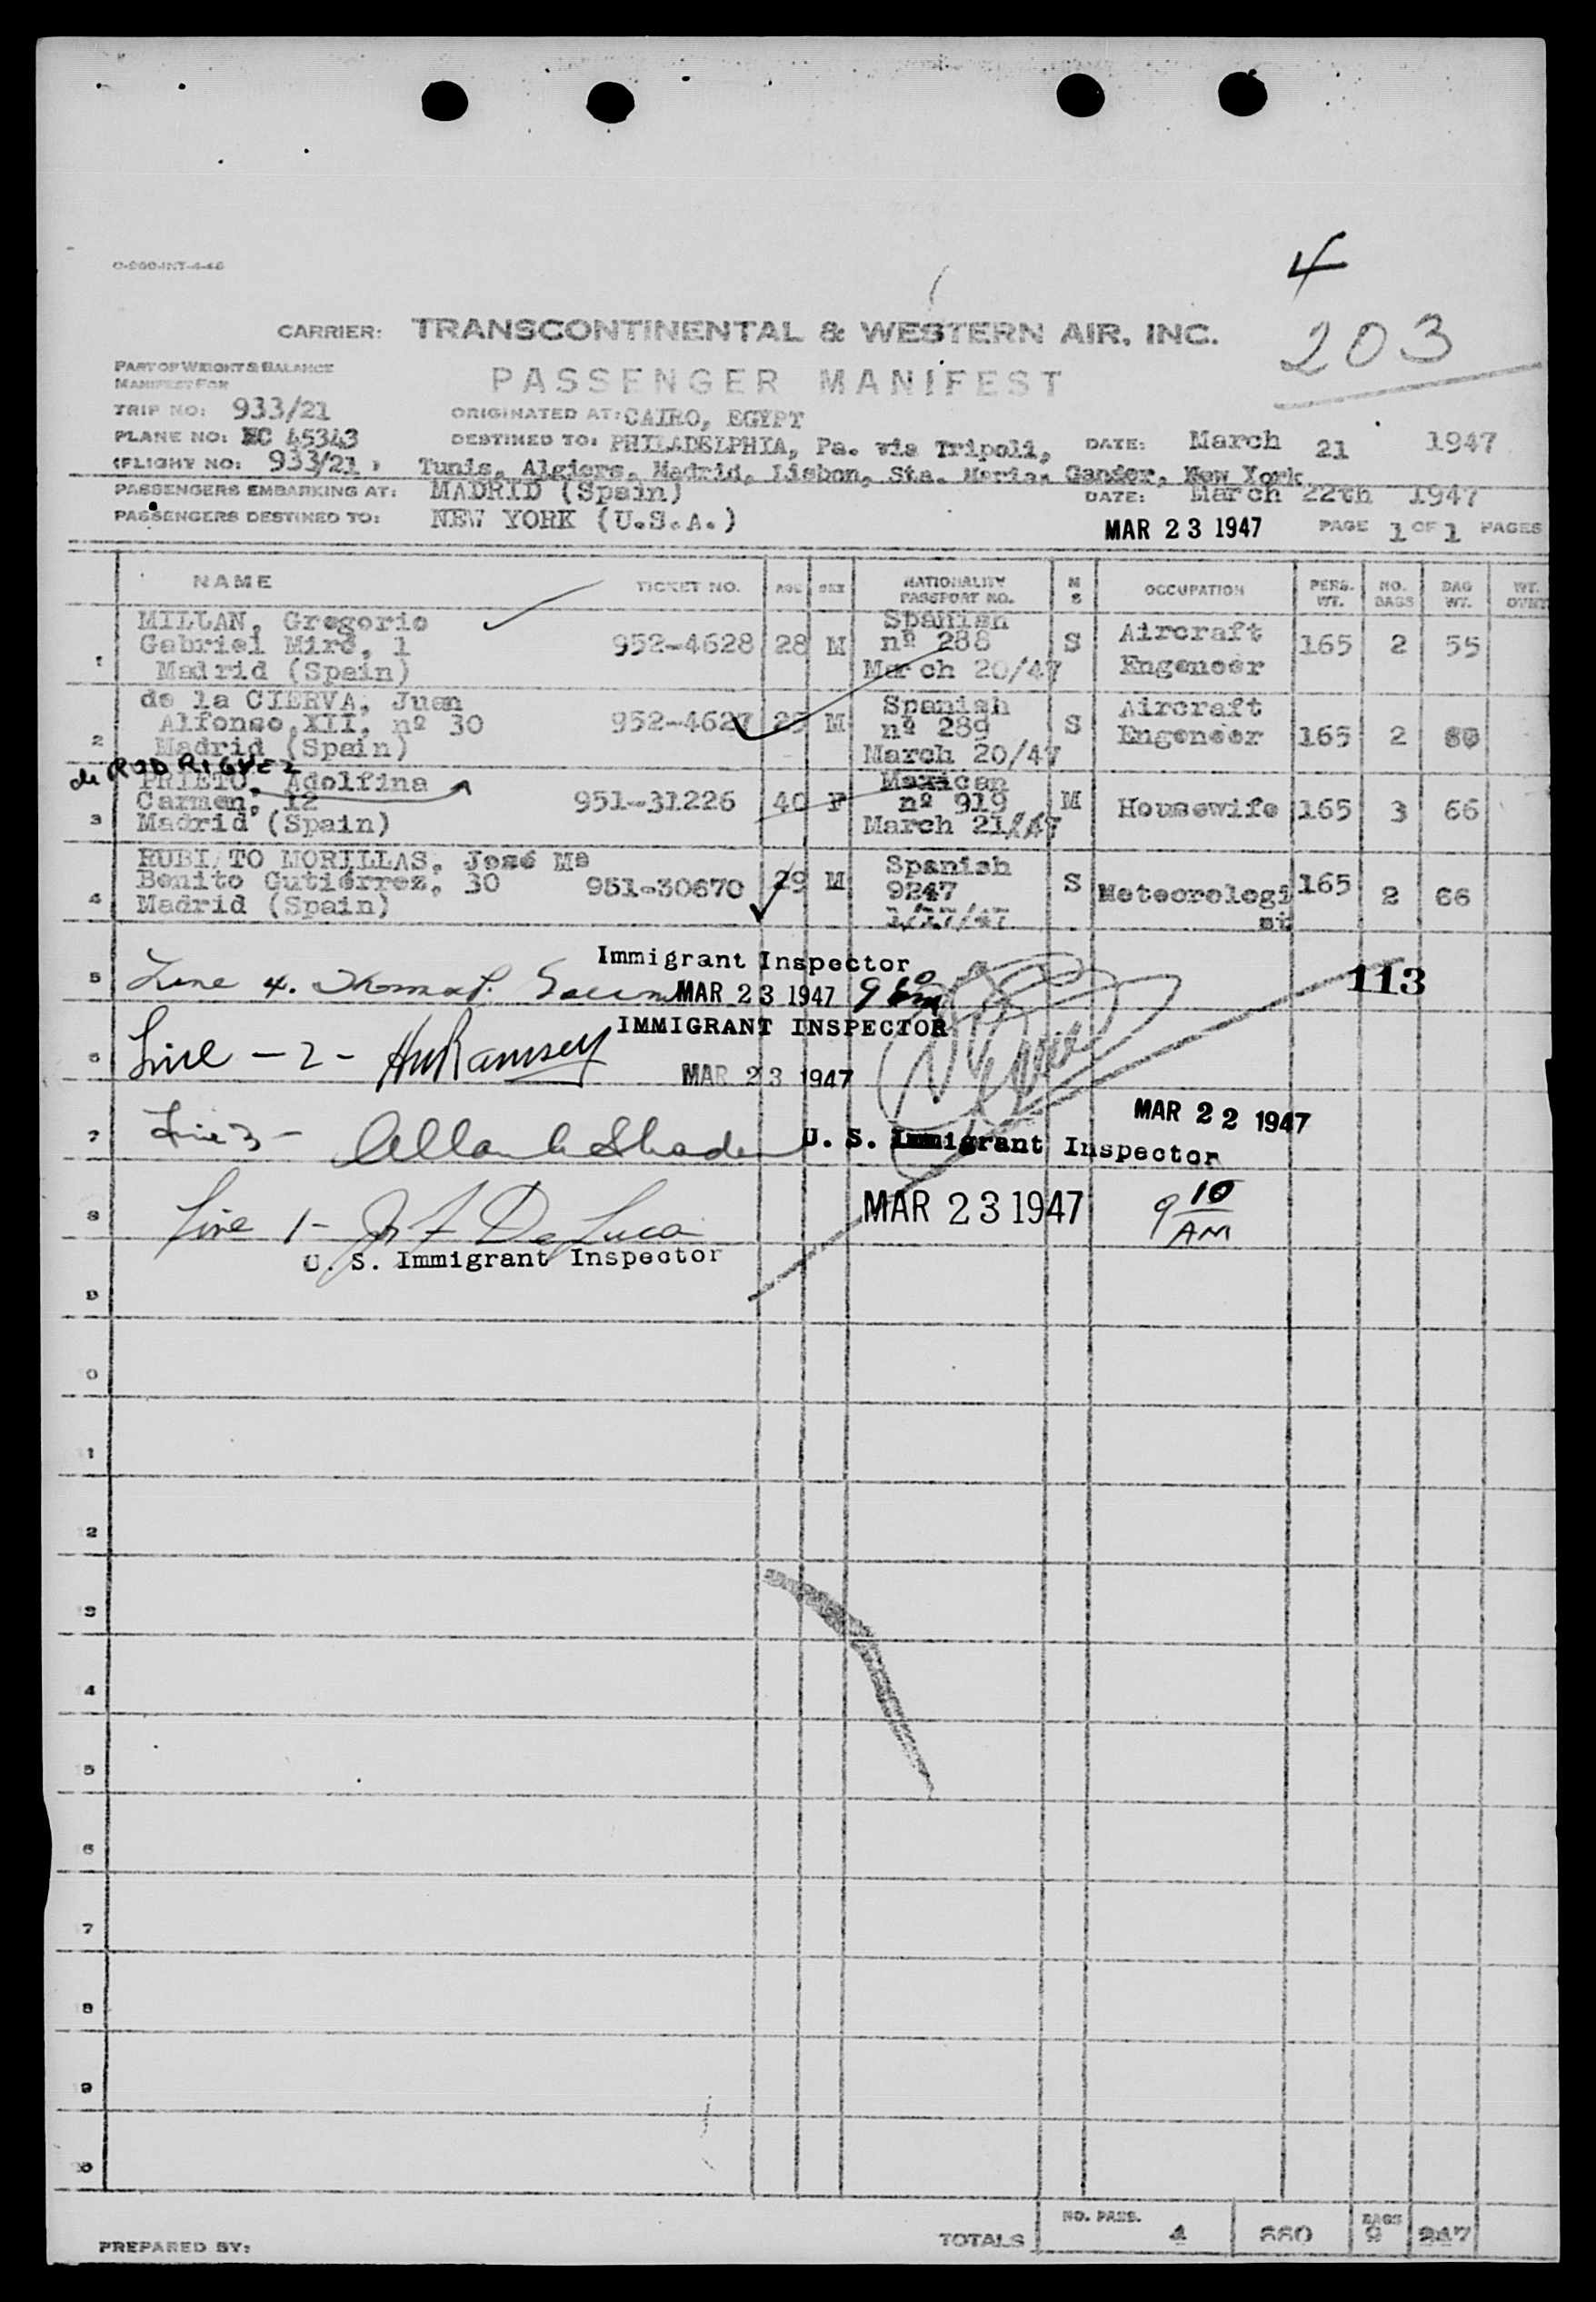 4
203
CARRIER: TRANSCONTINENTAL & WESTERN AIR, INC.
PART OF WEIGHT & BALANCE
MANIFEST FOR
PASSENGER MANIFEST
TRIP NO: 933/21
ORIGINATED AT: CAIRO, EGYPT
PLANE NO: NC 45343
DESTINED TO: PHILADELPHIA, Pa. via Tripoli, DATE: March 21 1947
(FLIGHT NO: 933/21) Tunis, Algiers, Madrid, Lisbon, Sta. Maria, Gander, New York
PASSENGERS EMBARKING AT: MADRID (Spain) DATE: March 22th 1947
PASSENGERS DESTINED TO: NEW YORK (U.S.A.) MAR 23 1947 PAGE 1 OF 1 PAGES
NAME TICKET NO. AGE SEX NATIONALITY PASSPORT NO. M S OCCUPATION PERS. WT. NO. BAGS BAG WT. WT. OVWT
MILLAN, Gregorio Spanish
1 Gabriel Miró, 1 952-4628 28 M nº 288 S Aircraft 165 2 55
Madrid (Spain) March 20/47 Engeneer
de la CIERVA, Juan Spanish Aircraft
2 Alfonso XII, nº 30 952-4627 29 M nº 289 S Engeneer 165 2
Madrid (Spain) March 20/47
de RODRIGUEZ
PRIETO, Adolfina Mexican
3 Carmen, 12 951-31226 40 F nº 919 M Housewife 165 3 66
Madrid (Spain) March 21/47
RUBI TO MORILLAS, José Mª Spanish
4 Benito Gutiérrez, 30 951-30670 29 M 9247 S Meteorologi 165 2 66
Madrid (Spain) 1/17/47 st
Immigrant Inspector
5 Line 4. MAR 23 1947 113
IMMIGRANT INSPECTOR
6 Line - 2 - HW Ramsey MAR 23 1947
MAR 22 1947
7 Line 3 - U. S. Immigrant Inspector
8 Line 1 - De Luca MAR 23 1947 9 10 AM
U. S. Immigrant Inspector
9
0
1
2
3
4
5
6
7
8
9
NO. PASS. BAGS
PREPARED BY: TOTALS 4 660 9 247